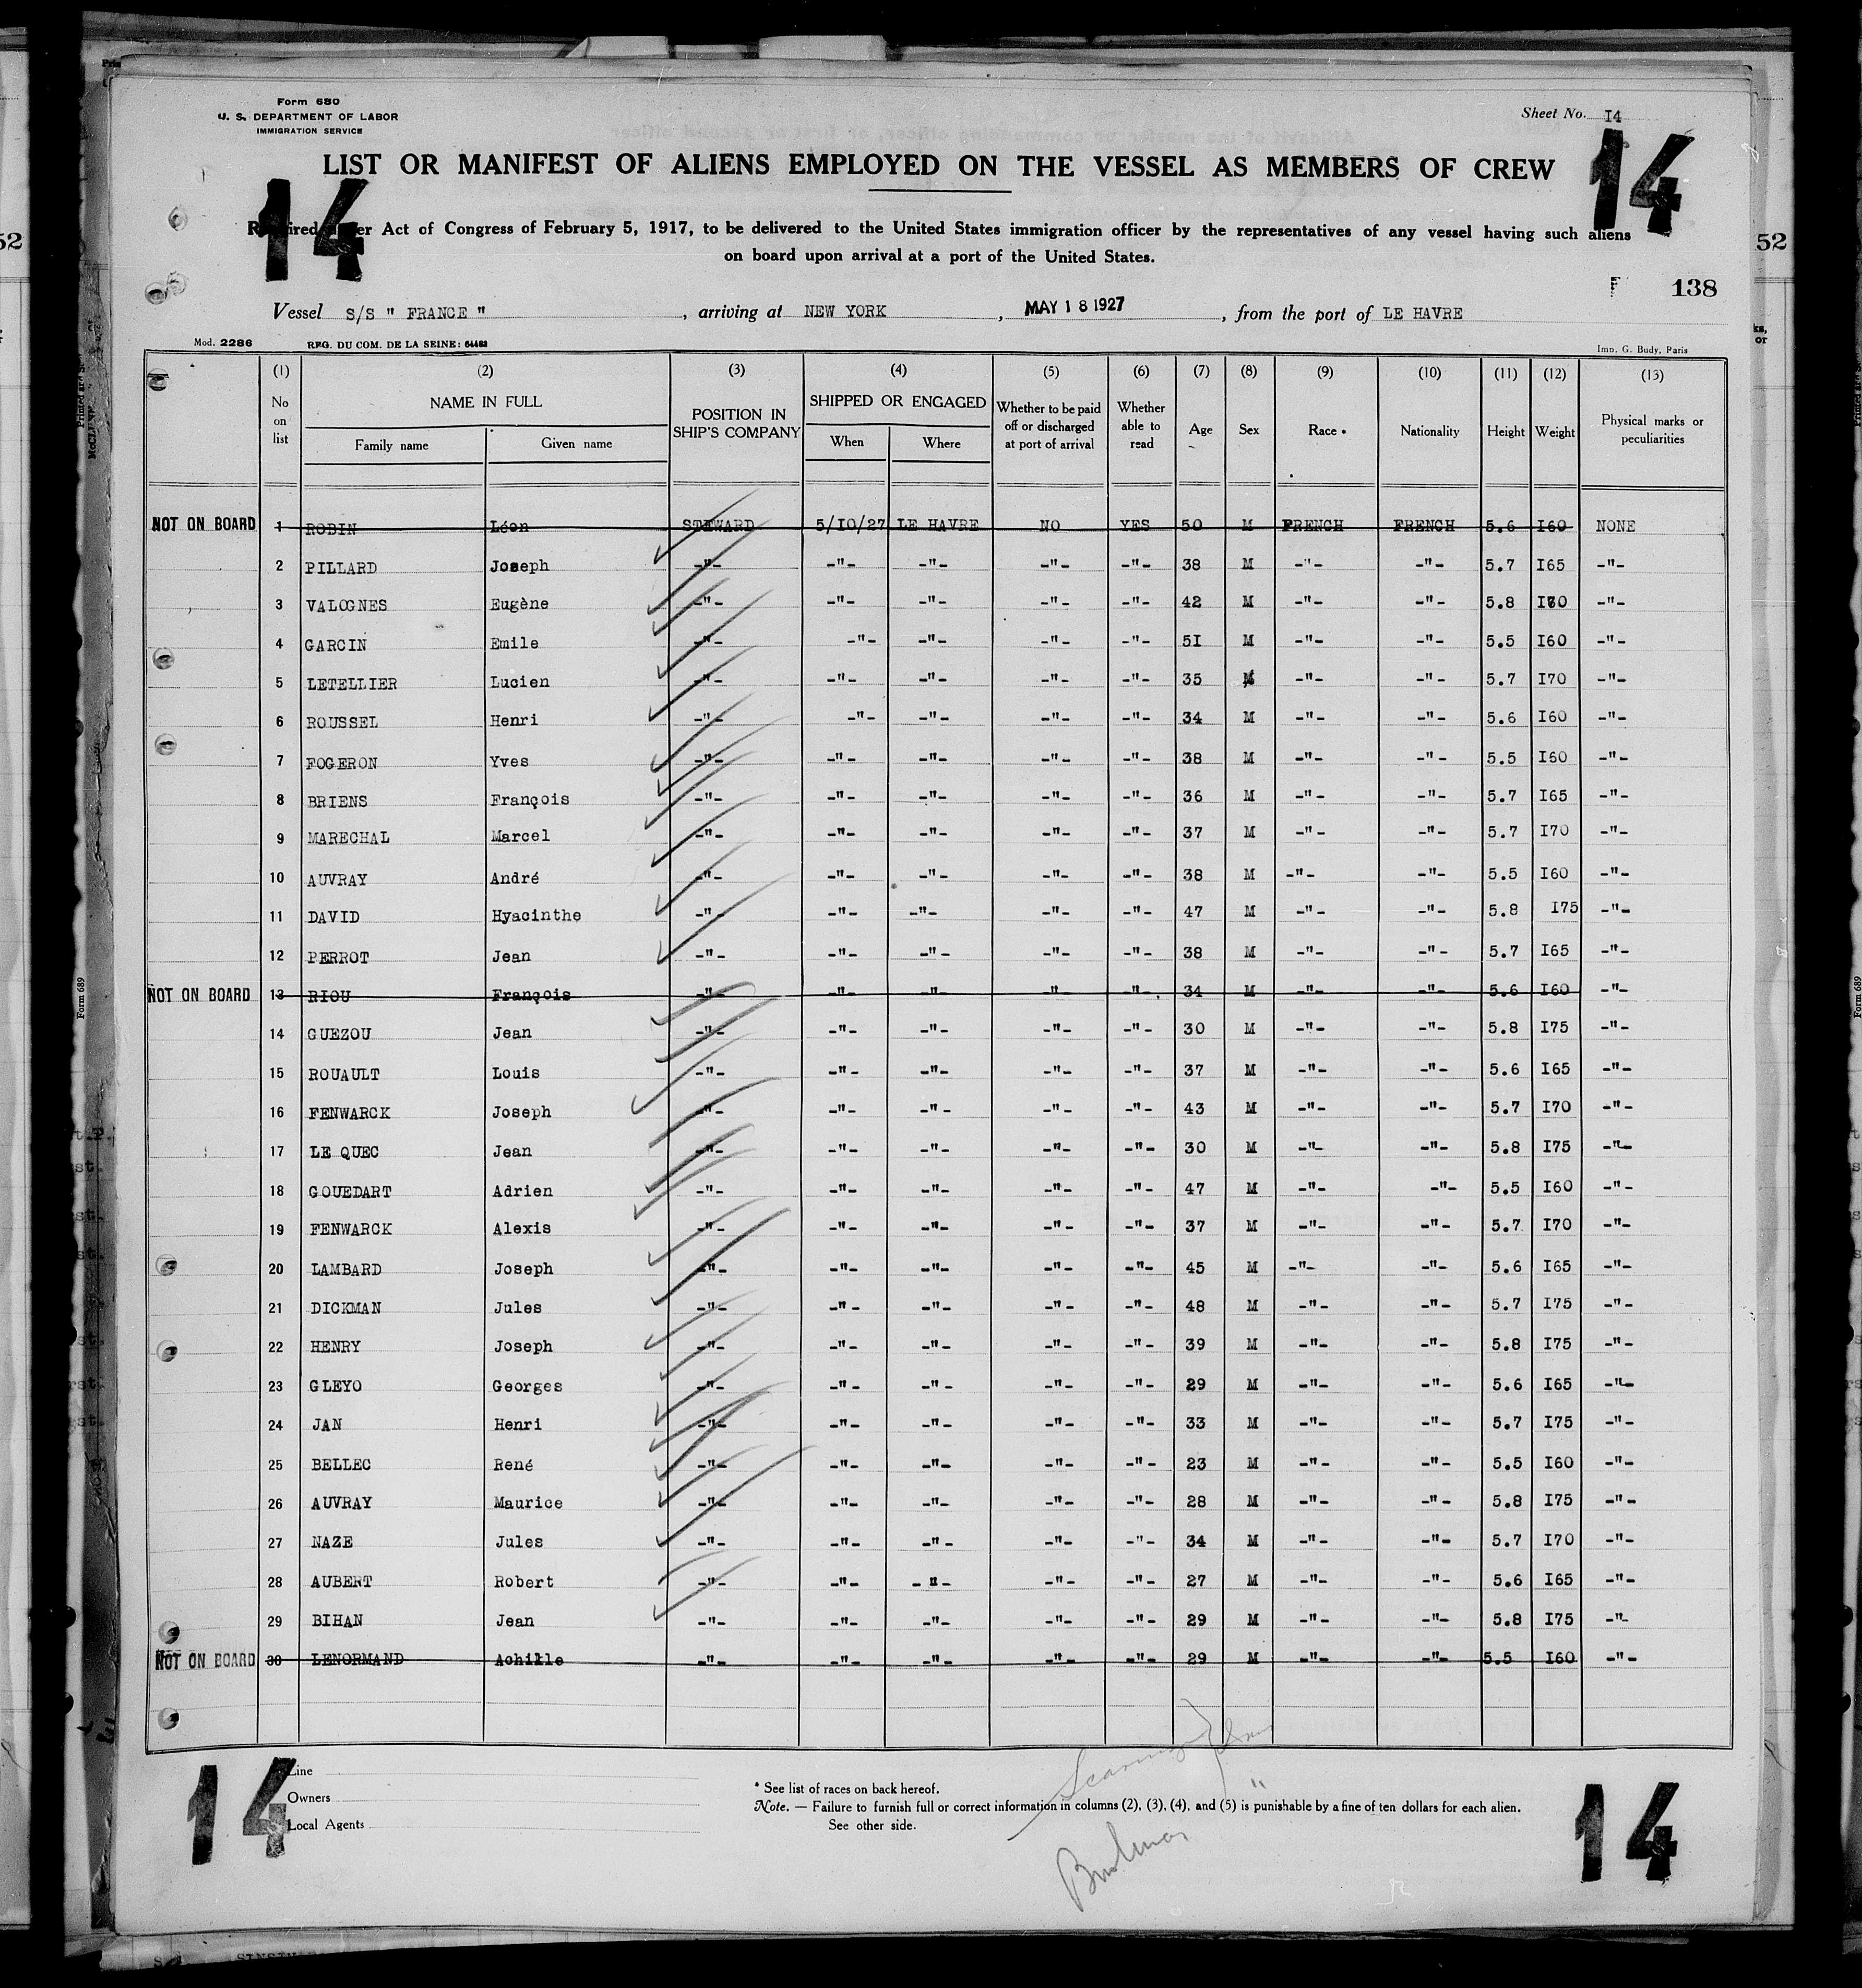 Form 680
U. S. DEPARTMENT OF LABOR
IMMIGRATION SERVICE
Sheet No. I4
14
14
LIST OR MANIFEST OF ALIENS EMPLOYED ON THE VESSEL AS MEMBERS OF CREW
Required under Act of Congress of February 5, 1917, to be delivered to the United States immigration officer by the representatives of any vessel having such aliens
on board upon arrival at a port of the United States.
138
Vessel S/S " FRANCE " , arriving at NEW YORK , MAY 18 1927 , from the port of LE HAVRE
Mod. 2286 REG. DU COM. DE LA SEINE: 64483 Imp. G. Budy, Paris
(1) (2) (3) (4) (5) (6) (7) (8) (9) (10) (11) (12) (13)
No on list NAME IN FULL Family name Given name POSITION IN SHIP'S COMPANY SHIPPED OR ENGAGED When Where Whether to be paid off or discharged at port of arrival Whether able to read Age Sex Race * Nationality Height Weight Physical marks or peculiarities
NOT ON BOARD 1 ROBIN Léon STEWARD 5/10/27 LE HAVRE NO YES 50 M FRENCH FRENCH 5.6 I60 NONE
2 PILLARD Joseph -"- -"- -"- -"- -"- 38 M -"- -"- 5.7 I65 -"-
3 VALOGNES Eugène -"- -"- -"- -"- -"- 42 M -"- -"- 5.8 I70 -"-
4 GARCIN Emile -"- -"- -"- -"- -"- 5I M -"- -"- 5.5 I60 -"-
5 LETELLIER Lucien -"- -"- -"- -"- -"- 35 M -"- -"- 5.7 I70 -"-
6 ROUSSEL Henri -"- -"- -"- -"- -"- 34 M -"- -"- 5.6 I60 -"-
7 FOGERON Yves -"- -"- -"- -"- -"- 38 M -"- -"- 5.5 I60 -"-
8 BRIENS François -"- -"- -"- -"- -"- 36 M -"- -"- 5.7 I65 -"-
9 MARECHAL Marcel -"- -"- -"- -"- -"- 37 M -"- -"- 5.7 I70 -"-
10 AUVRAY André -"- -"- -"- -"- -"- 38 M -"- -"- 5.5 I60 -"-
11 DAVID Hyacinthe -"- -"- -"- -"- -"- 47 M -"- -"- 5.8 I75 -"-
12 PERROT Jean -"- -"- -"- -"- -"- 38 M -"- -"- 5.7 I65 -"-
NOT ON BOARD 13 RIOU François -"- -"- -"- -"- -"- 34 M -"- -"- 5.6 I60 -"-
14 GUEZOU Jean -"- -"- -"- -"- -"- 30 M -"- -"- 5.8 I75 -"-
15 ROUAULT Louis -"- -"- -"- -"- -"- 37 M -"- -"- 5.6 I65 -"-
16 FENWARCK Joseph -"- -"- -"- -"- -"- 43 M -"- -"- 5.7 I70 -"-
17 LE QUEC Jean -"- -"- -"- -"- -"- 30 M -"- -"- 5.8 I75 -"-
18 GOUEDART Adrien -"- -"- -"- -"- -"- 47 M -"- -"- 5.5 I60 -"-
19 FENWARCK Alexis -"- -"- -"- -"- -"- 37 M -"- -"- 5.7 I70 -"-
20 LAMBARD Joseph -"- -"- -"- -"- -"- 45 M -"- -"- 5.6 I65 -"-
21 DICKMAN Jules -"- -"- -"- -"- -"- 48 M -"- -"- 5.7 I75 -"-
22 HENRY Joseph -"- -"- -"- -"- -"- 39 M -"- -"- 5.8 I75 -"-
23 GLEYO Georges -"- -"- -"- -"- -"- 29 M -"- -"- 5.6 I65 -"-
24 JAN Henri -"- -"- -"- -"- -"- 33 M -"- -"- 5.7 I75 -"-
25 BELLEC René -"- -"- -"- -"- -"- 23 M -"- -"- 5.5 I60 -"-
26 AUVRAY Maurice -"- -"- -"- -"- -"- 28 M -"- -"- 5.8 I75 -"-
27 NAZE Jules -"- -"- -"- -"- -"- 34 M -"- -"- 5.7 I70 -"-
28 AUBERT Robert -"- -"- -"- -"- -"- 27 M -"- -"- 5.6 I65 -"-
29 BIHAN Jean -"- -"- -"- -"- -"- 29 M -"- -"- 5.8 I75 -"-
NOT ON BOARD 30 LENORMAND Achille -"- -"- -"- -"- -"- 29 M -"- -"- 5.5 I60 -"-
14
14
Line
Owners
Local Agents
* See list of races on back hereof.
Note. — Failure to furnish full or correct information in columns (2), (3), (4), and (5) is punishable by a fine of ten dollars for each alien.
See other side.
52
52
Form 689
Form 689